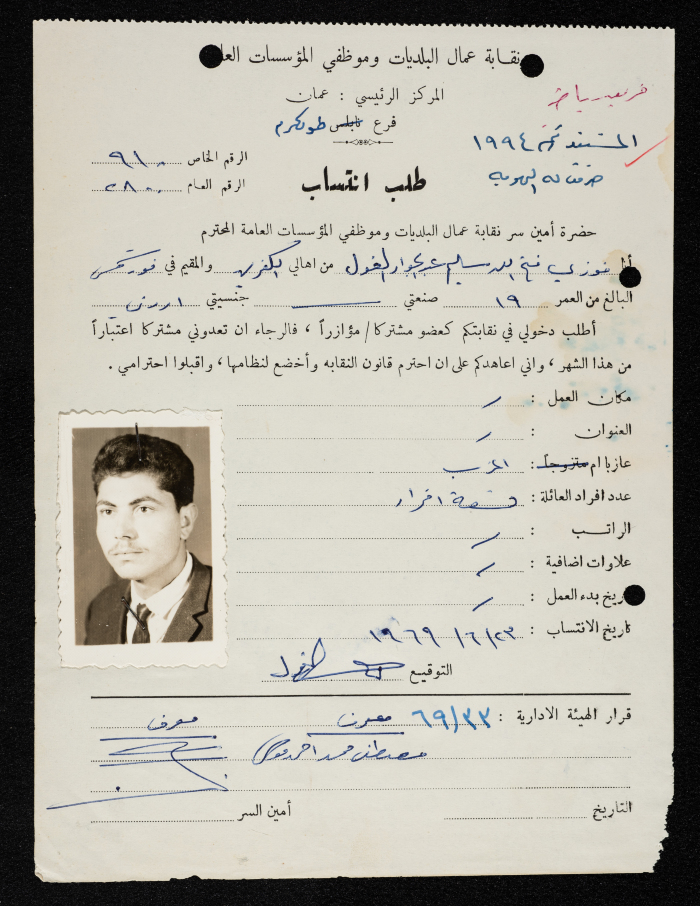 نقابة عمال البلديات وموظفي المؤسسات العا
المركز الرئيسي : عمان
فرع نابلس طولكرم
المستند رقم ١٩٩٤
الرقم الخاص ٩١٠٠
الرقم العام
طلب انتساب
حضرة أمين سر نقابة عمال البلديات وموظفي المؤسسات العامة المحترم
أنا فوزي فتح الله سالم عبد الجواد الغول من اهالي والمقيم في
البالغ من العمر ١٩ صنعتي جنسيتي اردني
أطلب دخولي في نقابتكم كعضو مشترك / مؤازراً ، فالرجاء ان تعدوني مشتركا اعتباراً
من هذا الشهر ، واني اعاهدكم على ان احترم قانون النقابه وأخضع لنظامها ، واقبلوا احترامي .
مكان العمل :
العنوان :
عازبا ام متزوجاً : اعزب
عدد افراد العائلة : افراد
الراتب :
علاوات اضافية :
تاريخ بدء العمل :
تاريخ الانتساب : ٢٣/٦/١٩٦٩
التوقيع الغول
قرار الهيئة الادارية : ٦٩/٣٣ معرف معرف
مصطفى محمد احمد
التاريخ أمين السر